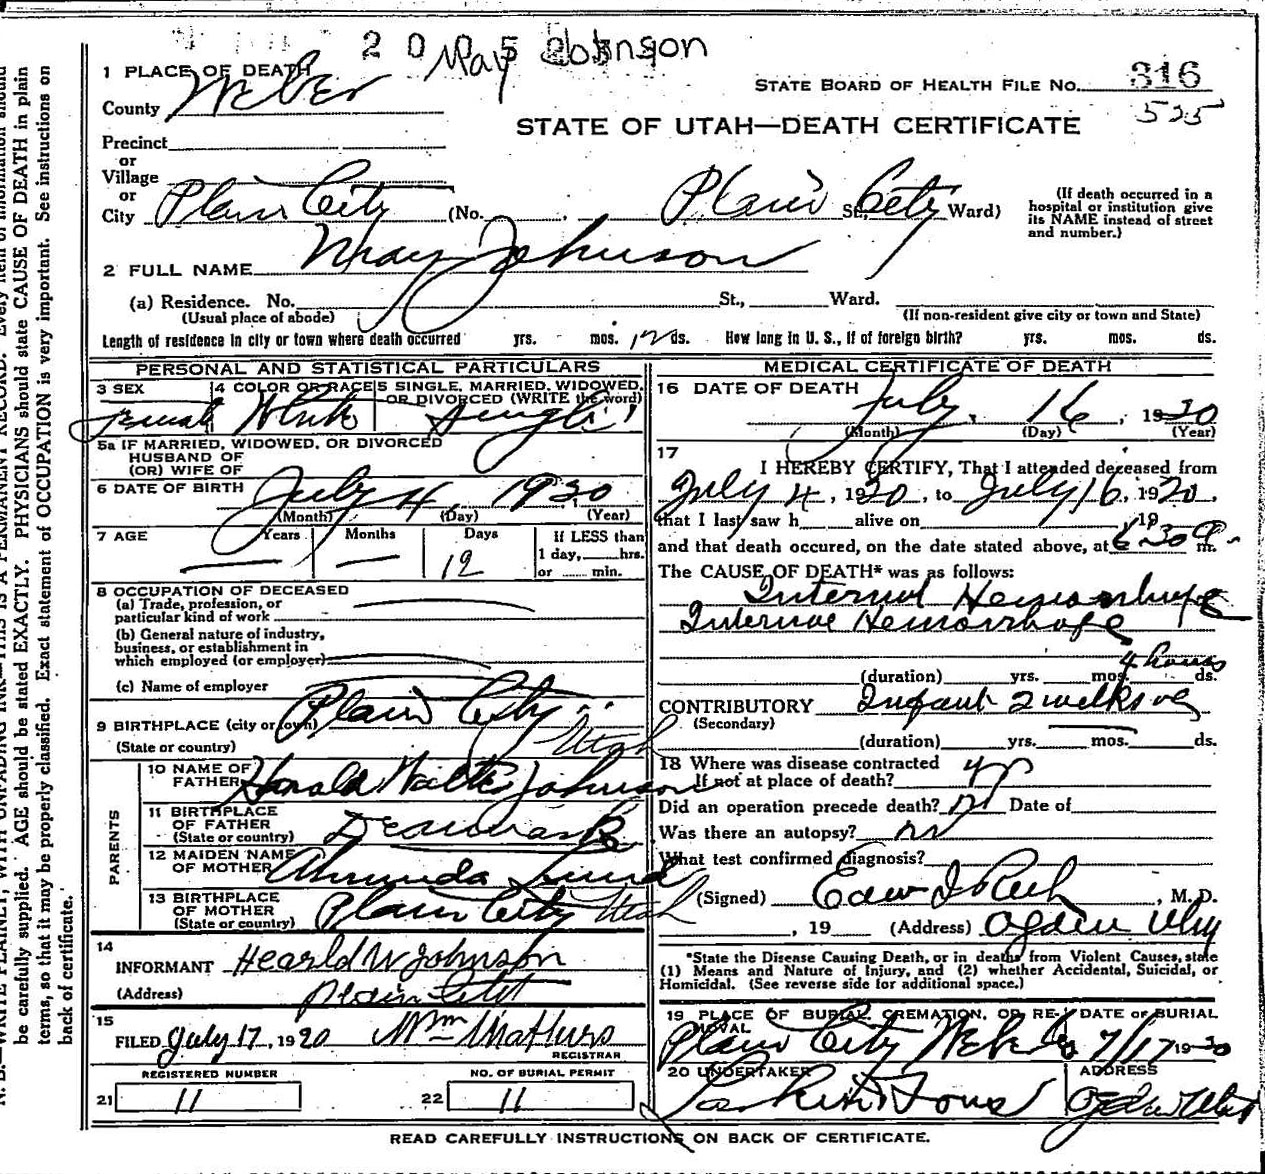 2005
May Johnson
1 PLACE OF DEATH
County Weber
Precinct
or
Village
or
City Plain City (No. Plain City St., Ward)
(If death occurred in a hospital or institution give its NAME instead of street and number.)
STATE BOARD OF HEALTH FILE NO. 316
525
STATE OF UTAH—DEATH CERTIFICATE
2 FULL NAME May Johnson
(a) Residence. No. St., Ward.
(Usual place of abode) (If non-resident give city or town and State)
Length of residence in city or town where death occurred yrs. mos. 12 ds. How long in U. S., if of foreign birth? yrs. mos. ds.
PERSONAL AND STATISTICAL PARTICULARS
3 SEX Female
4 COLOR OR RACE White
5 SINGLE, MARRIED, WIDOWED, OR DIVORCED (WRITE the word) Single
5a IF MARRIED, WIDOWED, OR DIVORCED
HUSBAND OF
(OR) WIFE OF
6 DATE OF BIRTH July 4 1920
(Month) (Day) (Year)
7 AGE Years Months Days 12 If LESS than 1 day, hrs. or min.
8 OCCUPATION OF DECEASED
(a) Trade, profession, or particular kind of work
(b) General nature of industry, business, or establishment in which employed (or employer)
(c) Name of employer
9 BIRTHPLACE (city or town) Plain City
(State or country) Utah
PARENTS
10 NAME OF FATHER Johnson
11 BIRTHPLACE OF FATHER (State or country) Denmark
12 MAIDEN NAME OF MOTHER Lund
13 BIRTHPLACE OF MOTHER (State or country) Plain City Utah
14
INFORMANT Hearld W Johnson
(Address) Plain City
15
FILED July 17, 1920 Wm
REGISTRAR
REGISTERED NUMBER
21 11
NO. OF BURIAL PERMIT
22 11
MEDICAL CERTIFICATE OF DEATH
16 DATE OF DEATH July 16, 1920
(Month) (Day) (Year)
17
I HEREBY CERTIFY, That I attended deceased from
July 4, 1920, to July 16, 1920,
that I last saw h alive on 19
and that death occured, on the date stated above, at 6 30 m.
The CAUSE OF DEATH* was as follows:
Internal Hemorrhage
Internal Hemorrhage
4 hours
(duration) yrs. mos. ds.
CONTRIBUTORY Infant 2 weeks
(Secondary)
(duration) yrs. mos. ds.
18 Where was disease contracted
If not at place of death?
Did an operation precede death? no Date of
Was there an autopsy? no
What test confirmed diagnosis?
(Signed) , M. D.
, 19 (Address) Ogden Utah
*State the Disease Causing Death, or in deaths from Violent Causes, state
(1) Means and Nature of Injury, and (2) whether Accidental, Suicidal, or
Homicidal. (See reverse side for additional space.)
19 PLACE OF BURIAL, CREMATION, OR REMOVAL Plain City Weber Co
DATE OF BURIAL 7/17 1920
20 UNDERTAKER Larkin & Sons
ADDRESS Ogden Utah
READ CAREFULLY INSTRUCTIONS ON BACK OF CERTIFICATE.
be carefully supplied. AGE should be stated EXACTLY. PHYSICIANS should state CAUSE OF DEATH in plain
terms, so that it may be properly classified. Exact statement of OCCUPATION is very important. See instructions on
back of certificate.